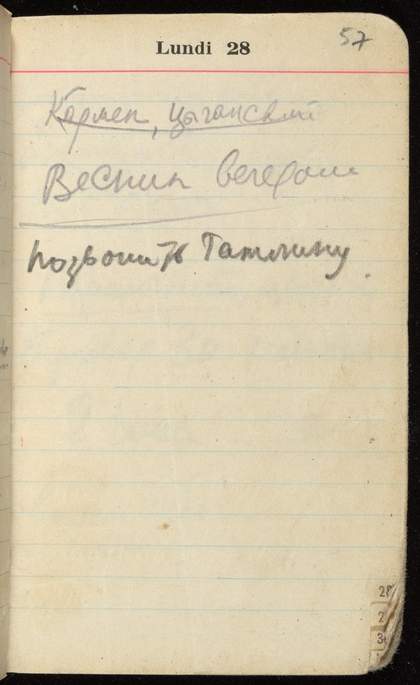 Lundi 28
57
Кармен, цыганский
Веснин вечером
позвонить Татлину
28
2
3